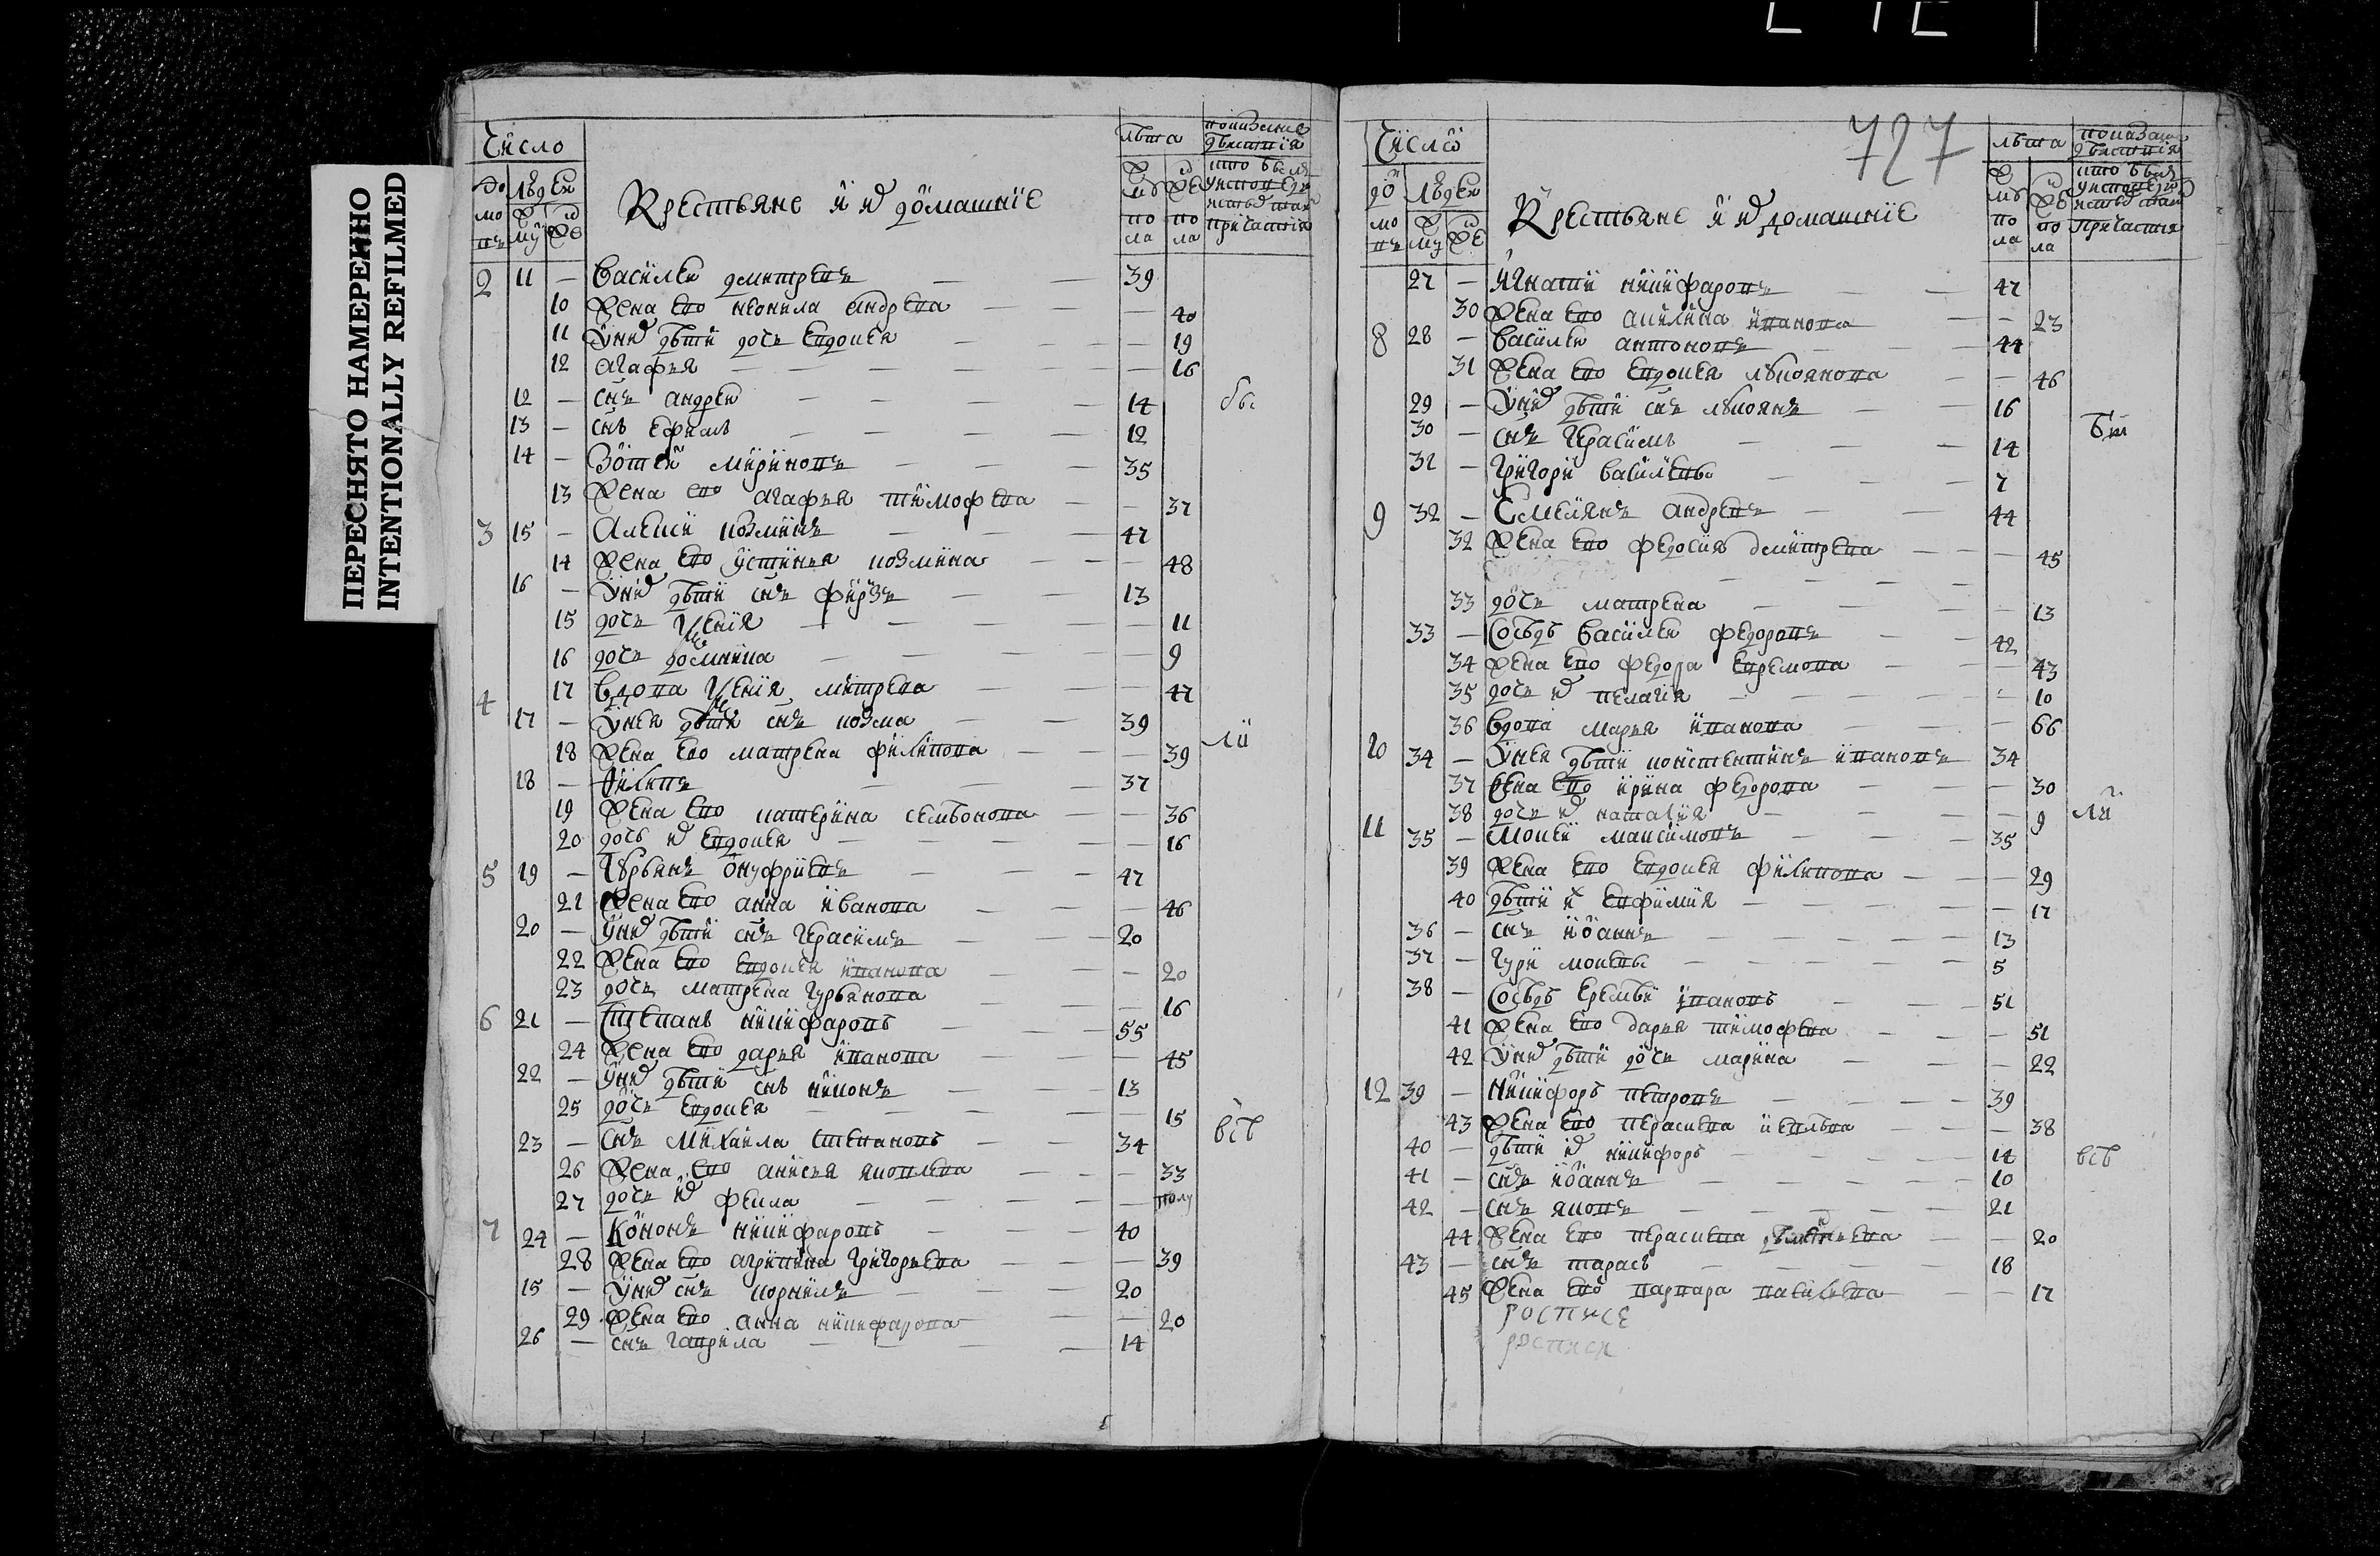 ПЕРЕСНЯТО НАМЕРЕННО
INTENTIONALLY REFILMED
Число
людей
Крестьяне и их домашние
лѣта
показание действия
2 11 — Василей дмитревъ — 39
10 Жена ево неонила андрева — 40
11 У них дѣти дочь евдокея — 19
12 агафья — 16
12 — снъ андрей — 14 бы
13 — снъ ефимъ — 12
14 — Зотей — 35
13 Жена ево агафья тимофева — 37
3 15 — Алекси козминъ — 47
14 Жена ево устинья козмина — 48
16 — У них дѣти снъ фирзъ — 13
15 дочь — 11
16 дочь домника — 9
4 17 вдова митрева — 47
17 — У нея дѣти снъ козма — 39 ли
18 Жена ево матрена филипова — 39
18 — Филипъ — 37
19 Жена ево катерина семьонова — 36
20 дочь их евдокея — 16
5 19 — Гурьянъ онуфриевъ — 47
21 Жена ево анна иванова — 46
20 — У них дѣти снъ герасимъ — 20
22 Жена ево евдокея иванова — 20
23 дочь матрена гурьянова — 16
6 21 — Степанъ никифаровъ — 55
24 Жена ево дарья иванова — 45
22 — У них дѣти снъ никонъ — 13
25 дочь евдокея — 15
23 — Снъ михаила степановъ — 34 всѣ
26 Жена ево анисья яковлева — 33
27 дочь их фекла — полу
7 24 — Кононъ никифаровъ — 40
28 Жена ево агрипина григорьева — 39
15 — У них снъ корнилъ — 20
29 Жена ево анна никифарова — 20
26 — снъ гаврила — 14
727
Число
людей
Крестьяне и их домашние
лѣта
27 — Игнатий никифаровъ — 47
30 Жена ево акилина иванова — 23
8 28 — Василей антоновъ — 44
31 Жена ево евдокея лукоянова — 46
29 — У них дѣти снъ лукоянъ — 16 бы
30 — снъ герасимъ — 14
31 — Григори василевъ — 7
9 32 — Емелянъ андревъ — 44
32 Жена ево федосия дмитрева — 45
33 дочь матрена — 13
33 — Сосѣдъ василей федоровъ — 42
34 Жена ево федора ефремова — 43
35 дочь их пелагия — 10
36 Вдова марья иванова — 66
10 34 — У нея дѣти констентинъ ивановъ 34
37 Жена ево ирина федорова — 30
38 дочь их наталия — 9 ли
11 35 — Мокей максимовъ — 35
39 Жена ево евдокея филипова — 29
40 Дѣти их евфимия — 17
36 — снъ иоаннъ — 13
37 — гури мокевъ — 5
38 — Сосѣдъ еремѣй ивановъ — 51
41 Жена ево дарья тимофева — 51
42 У них дѣти дочь марина — 22
12 39 — Никифоръ петровъ — 39
43 Жена ево пераскева — 38
40 — Дѣти их никифоръ — 14 всѣ
41 — снъ иоаннъ — 10
42 — снъ яковъ — 21
44 Жена ево пераскева — 20
43 — снъ тарасъ — 18
45 Жена ево варвара василева — 17
росписе
росписи